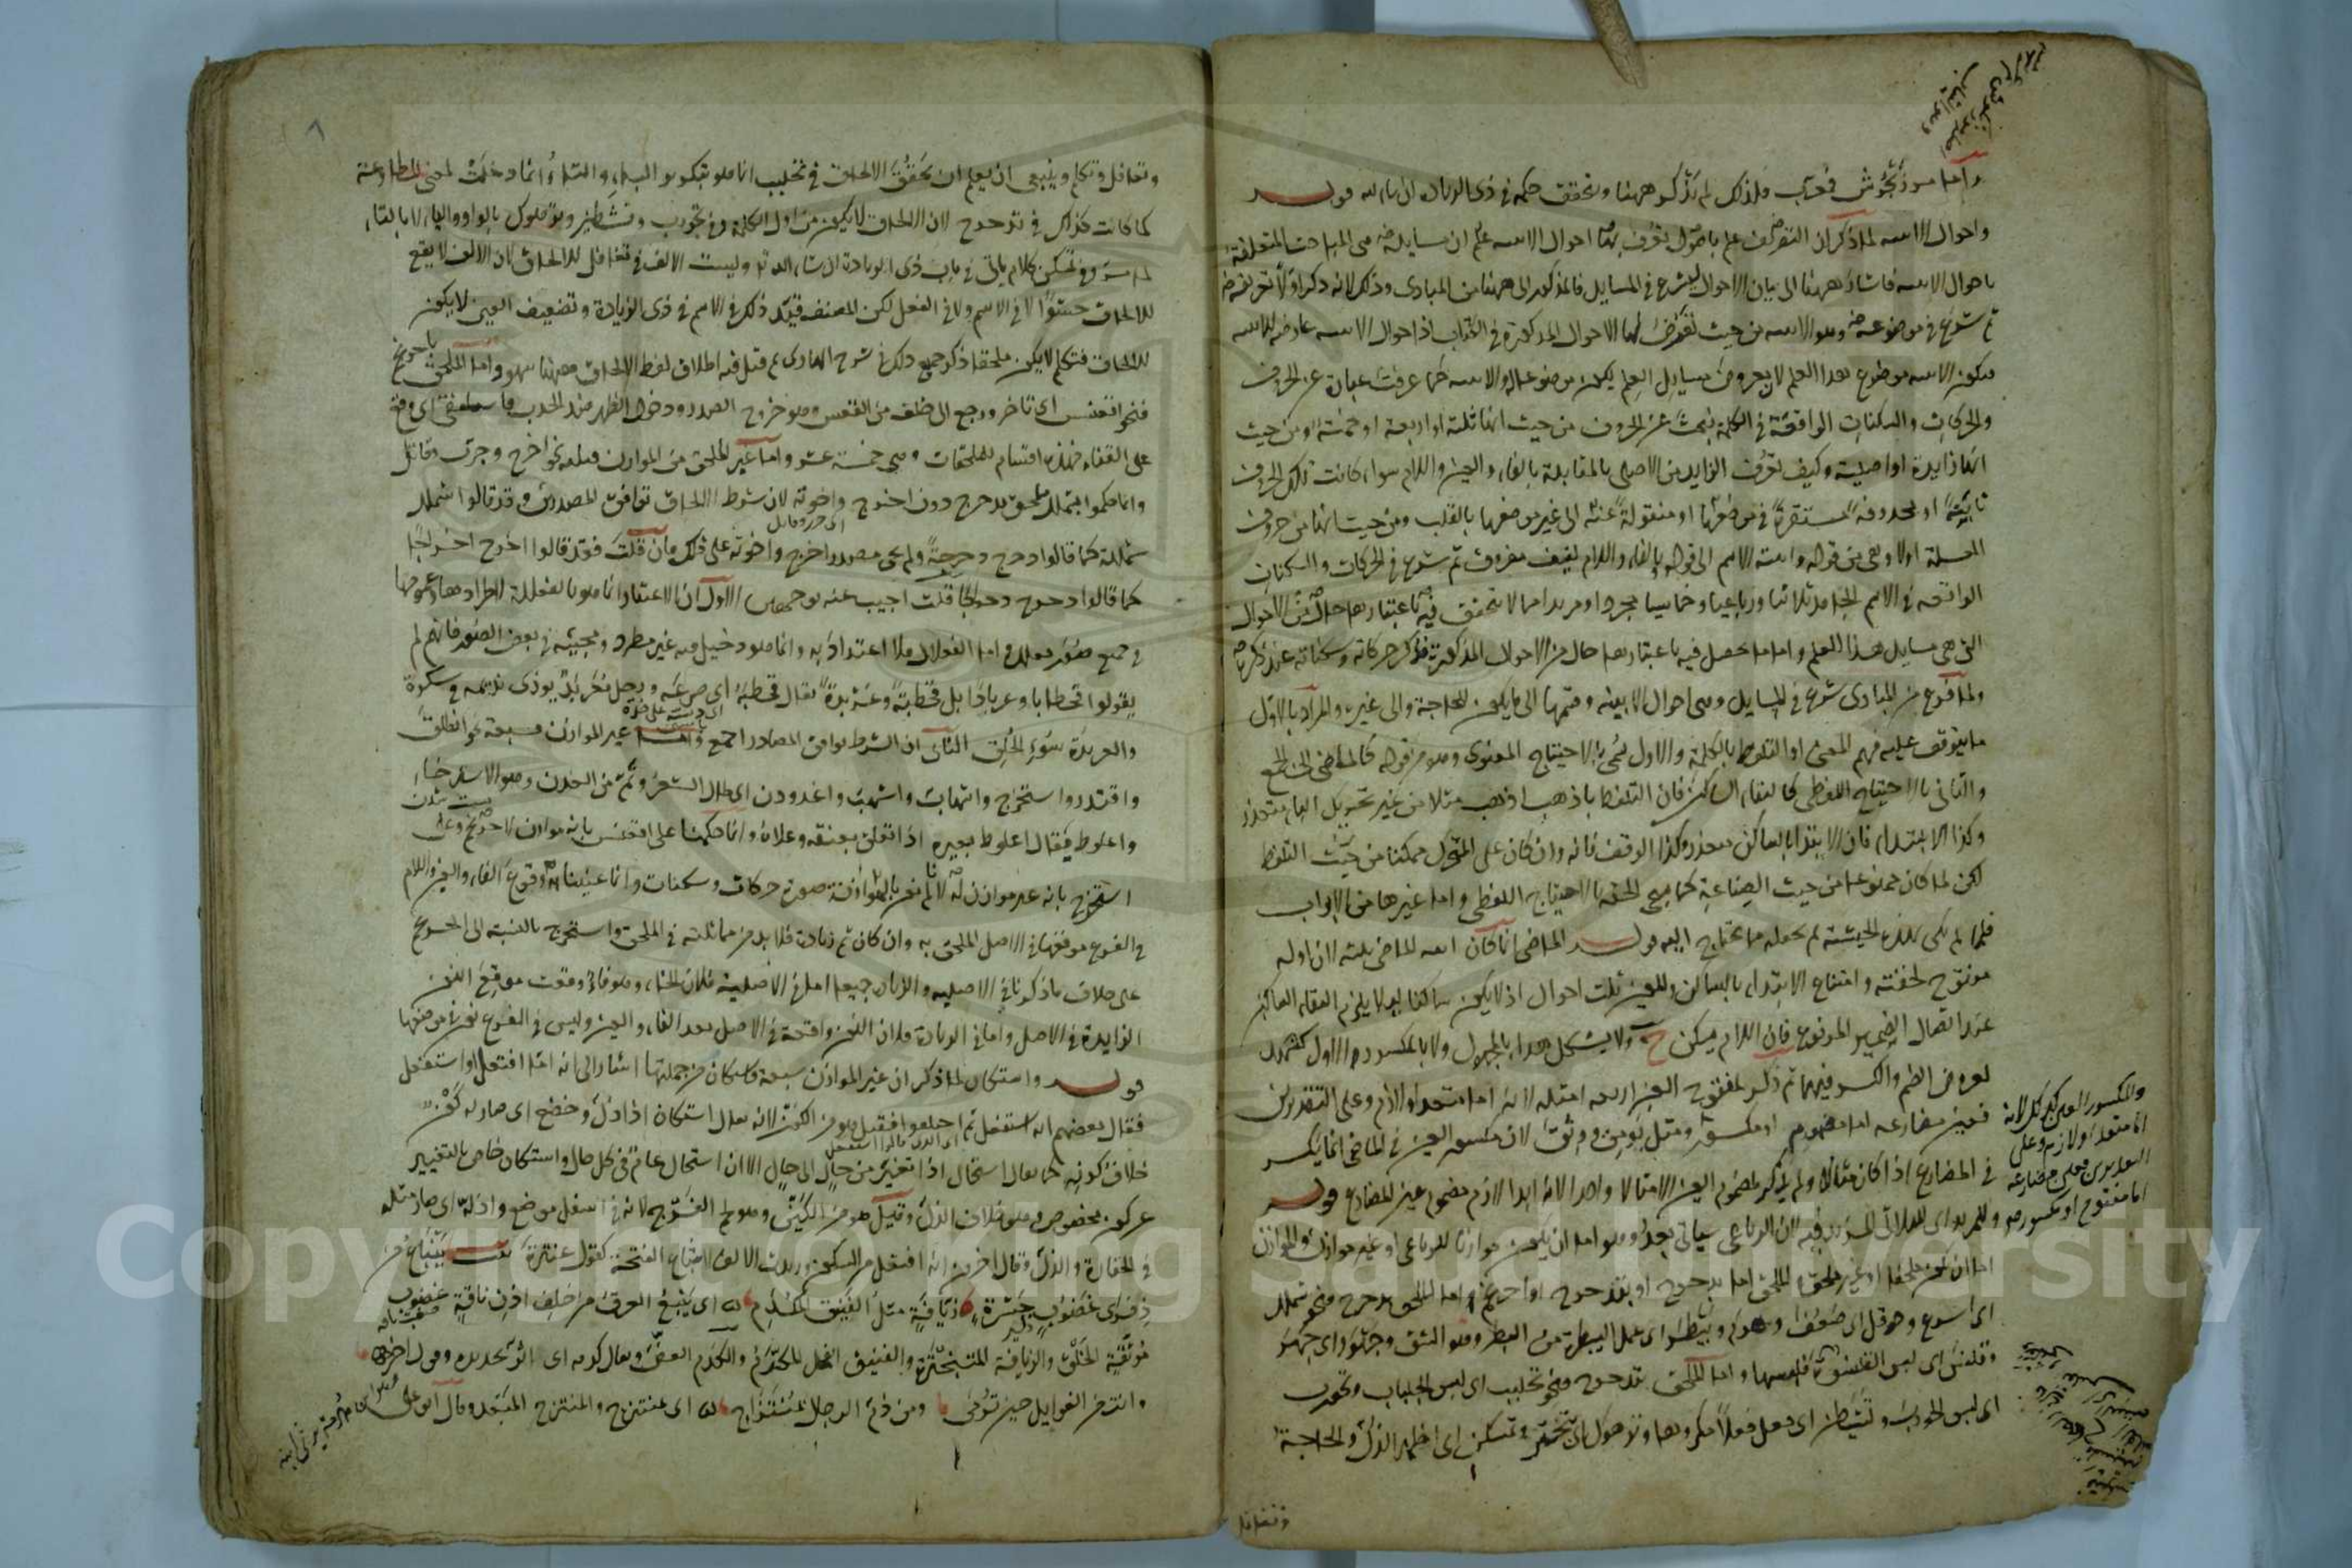 واما مرزنجوش فمعرب فلذلك لم يذكر ههنا ونحقق حكمه في ذي الزيادة ان شاء الله قوله
واحوال الابنية لما ذكر ان التصريف علم باصول تعرف بها احوال الابنية علم ان مسايله هي المباحث المتعلقة
باحوال الابنية فاشار ههنا الى بيان الاحوال ليشرع في المسايل فالمذكور الى ههنا من المبادي وذلك لانه ذكر اولا تعريفه
ثم شرع في موضوعه وهو الابنية من حيث تعرض لها الاحوال المذكورة في الكتاب اذ احوال الابنية عارضة للابنية
فيكون الابنية موضوع هذا العلم لان معروض مسايل العلم يكون موضوعا له والابنية كما عرفت عبارة عن الحروف
والحركات والسكنات الواقعة في الكلمة فبحث عن الحروف من حيث انها ثلثة او اربعة او خمسة ومن حيث
انها زايدة او اصلية وكيف تعرف الزايد من الاصلي بالمقابلة بالفاء والعين واللام سواء كانت تلك الحروف
ثابتة او محذوفة مستقرة في موضعها او منقولة عنه الى غير موضعها بالقلب ومن حيث انها من حروف
العلة اولا وهي من قوله وابنية الاسم الى قوله وبالفاء واللام لفيف مفروق ثم شرع في الحركات والسكنات
الواقعة في الاسم الجامد ثلاثيا ورباعيا وخماسيا مجردا ومزيدا مما لا يتحقق فيه باعتبارها حال من الاحوال
التي هي مسايل هذا العلم واما ما يحصل فيه باعتبارها حال من الاحوال المذكورة فذكر حركاته وسكناته عند ذكرها
ولما فرغ من المبادي شرع في المسايل وهي احوال الابنية وقسمها الى ما يكون للحاجة والى غيره والمراد بالاول
ما يتوقف عليه فهم المعنى او التلفظ بالكلمة والاول سمي بالاحتياج المعنوي وهو من قوله كالماضي الى الجمع
والثاني بالاحتياج اللفظي كالتقاء الساكنين فان التلفظ باذهب اذهب مثلا من غير تحريك الباء متعذر
وكذا الابتداء فان الابتداء بالساكن متعذر وكذا الوقف فانه وان كان على المتحرك ممكنا من حيث التلفظ
لكن لما كان ممنوعا من حيث الصناعة كما يجيء الحقه بالاحتياج اللفظي واما غيرها من الابواب
فلما لم يكن بهذه الحيثية لم يجعله مما يحتاج اليه قوله الماضي انما كان ابنية الماضي ثلثة لان اوله
مفتوح لخفته وامتناع الابتداء بالساكن وللعين ثلث احوال اذ لا يكون ساكنا لئلا يلزم التقاء الساكنين
عند اتصال الضمير المرفوع فان اللام يسكن ح ولا يشكل هذا بالمجهول ولا بالمكسور الاول كشهد
لعروض الضم والكسر فيهما ثم ذكر لمفتوح العين اربعة امثلة لانه اما متعد او لازم وعلى التقديرين
فعين مضارعه اما مضموم او مكسور ومثل يومن و وثق لان مكسور العين في الماضي انما يكسر
في المضارع اذا كان مثالا ولم يذكر لمضموم العين الا مثالا واحدا لانه ابدا لازم مضموم عين المضارع قوله
وللمزيد اي للثلاثي المزيد فيه لان الرباعي سيأتي بعد وهو اما ان يكون موازنا للرباعي او غير موازن له والموازن
اما ان يكون ملحقا او غير ملحق والملحق اما بدحرج او بتدحرج او احرنجم اما الملحق بدحرج فنحو شملل
اي اسرع وحوقل اي ضعف وبيطر اي عمل البيطرة من البطر وهو الشق وجهور اي جهر
وقلنس اي لبس القلنسوة واما الملحق بتدحرج فنحو تجلبب اي لبس الجلباب وتجورب
اي لبس الجورب وتشيطن اي فعل فعلا مكروها وترهوك اي تبختر وتمسكن اي اظهر الذل والحاجة
والمكسور العين كذلك لانه
اما متعد او لازم وعلى
التقديرين فعين مضارعه
اما مفتوح او مكسور
وتغافل
وتغافل وتكلم وينبغي ان يعلم ان تحقق الالحاق في تجلبب انما هو بتكرير الباء والتاء انما دخلت لمعنى المطاوعة
كما كانت كذلك في تدحرج لان الالحاق لا يكون من اول الكلمة وفي تجورب وتشيطن وترهوك بالواو والياء لا بالتاء
وفي تمسكن كلام يأتي في باب ذي الزيادة ان شاء الله وليست الالف في تغافل للالحاق لان الالف لا يقع
للالحاق حشوا لا في الاسم ولا في الفعل لكن المصنف قيد ذلك في الاسم في ذي الزيادة وتضعيف العين لا يكون
للالحاق فتكلم لا يكون ملحقا ذكر جميع ذلك في شرح الهادي ثم قيل فيه اطلاق لفظ الالحاق ههنا سهو واما الملحق باحرنجم
فنحو اقعنسس اي تاخر ورجع الى خلف من القعس وهو خروج الصدر ودخول الظهر ضد الحدب واسلنقى اي وقع
على القفاء فهذه اقسام الملحقات وهي خمسة عشر واما غير الملحق من الموازن فثلثة نحو اخرج وجرب وقاتل
وانما حكموا بشملل ملحق بدحرج دون اخرج واخوته لان شرط الالحاق توافق المصدرين وقد قالوا شملل
شمللة كما قالوا دحرج دحرجة ولم يجئ مصدر اخرج واخوته على ذلك فان قلت فقد قالوا اخرج اخراجا
كما قالوا دحرج دحراجا قلت اجيب عنه بوجهين الاول ان الاعتبار انما هو بالفعللة لاطرادها وعمومها
في جميع صور فعلل واما الفعلال فلا اعتداد به وانما هو دخيل فيه غير مطرد ومجيئه في بعض الصور فانهم لم
يقولوا قحطابا وعربادا بل قحطبة وعربدة يقال قحطبه اي صرعه ورجل معربد يوذي نديمه في سكره
والعربدة سوء الخلق الثاني ان الشرط توافق المصادر اجمع واما غير الموازن فسبعة نحو انطلق
واقتدر واستخرج واشهاب واشهب واغدودن اي طال الشعر وتم من الغدن وهو الاسترخاء
واعلوط يقال اعلوط بعيره اذا تعلق بعنقه وعلاه وانما حكمنا على اقعنسس بانه موازن لاحرنجم وعلى
استخرج بانه غير موازن له لانا لم نعن بالموازنة صورة حركات وسكنات وانما عنينا وقوع الفاء والعين واللام
في الفرع موقعها في الاصل الملحق به وان كان ثم زيادة فلا بد من مماثلته في الملحق واستخرج بالنسبة الى احرنجم
على خلاف ما ذكرنا في الاصلية والزيادة جميعا اما في الاصلية فلان الخاء وهو فاء وقعت موقع النون
الزايدة في الاصل واما في الزيادة فلان النون واقعة في الاصل بعد الفاء والعين وليس في الفرع نون في موضعها
قوله واستكان لما ذكر ان غير الموازن سبعة فكان من جملتها اشار الى انه اما افتعل او استفعل
فقال بعضهم انه استفعل ثم اختلفوا فقيل هو من الكون لانه يقال استكان اذا ذل وخضع اي صار له كون
خلاف كونه كما يقال استحال اذا تغير من حال الى حال الا ان استحال عام في كل حال واستكان خاص بالتغيير
عن كون مخصوص وهو خلاف الذل وقيل هو من الكين وهو لحم الفرج لانه في اسفل موضع واذله اي صار مثله
في الحقارة والذل وقال اخرون انه افتعل من السكون وزيدت الالف لاشباع الفتحة كقول عنترة ينباع من
ذفرى غضوب جسرة زيافة مثل الفنيق المكدم اي ينبع العرق من خلف اذن ناقة غضوب
موثقة الخلق والزيافة المتبخترة والفنيق الفحل المكرم والكدم العض ويقال كدمه اي اثر بحديده وقول اخر
وانت من الغوايل حين ترمى ومن ذم الرجال بمنتزاح اي بمنتزح والمنتزح المبعد وقال ابو علي